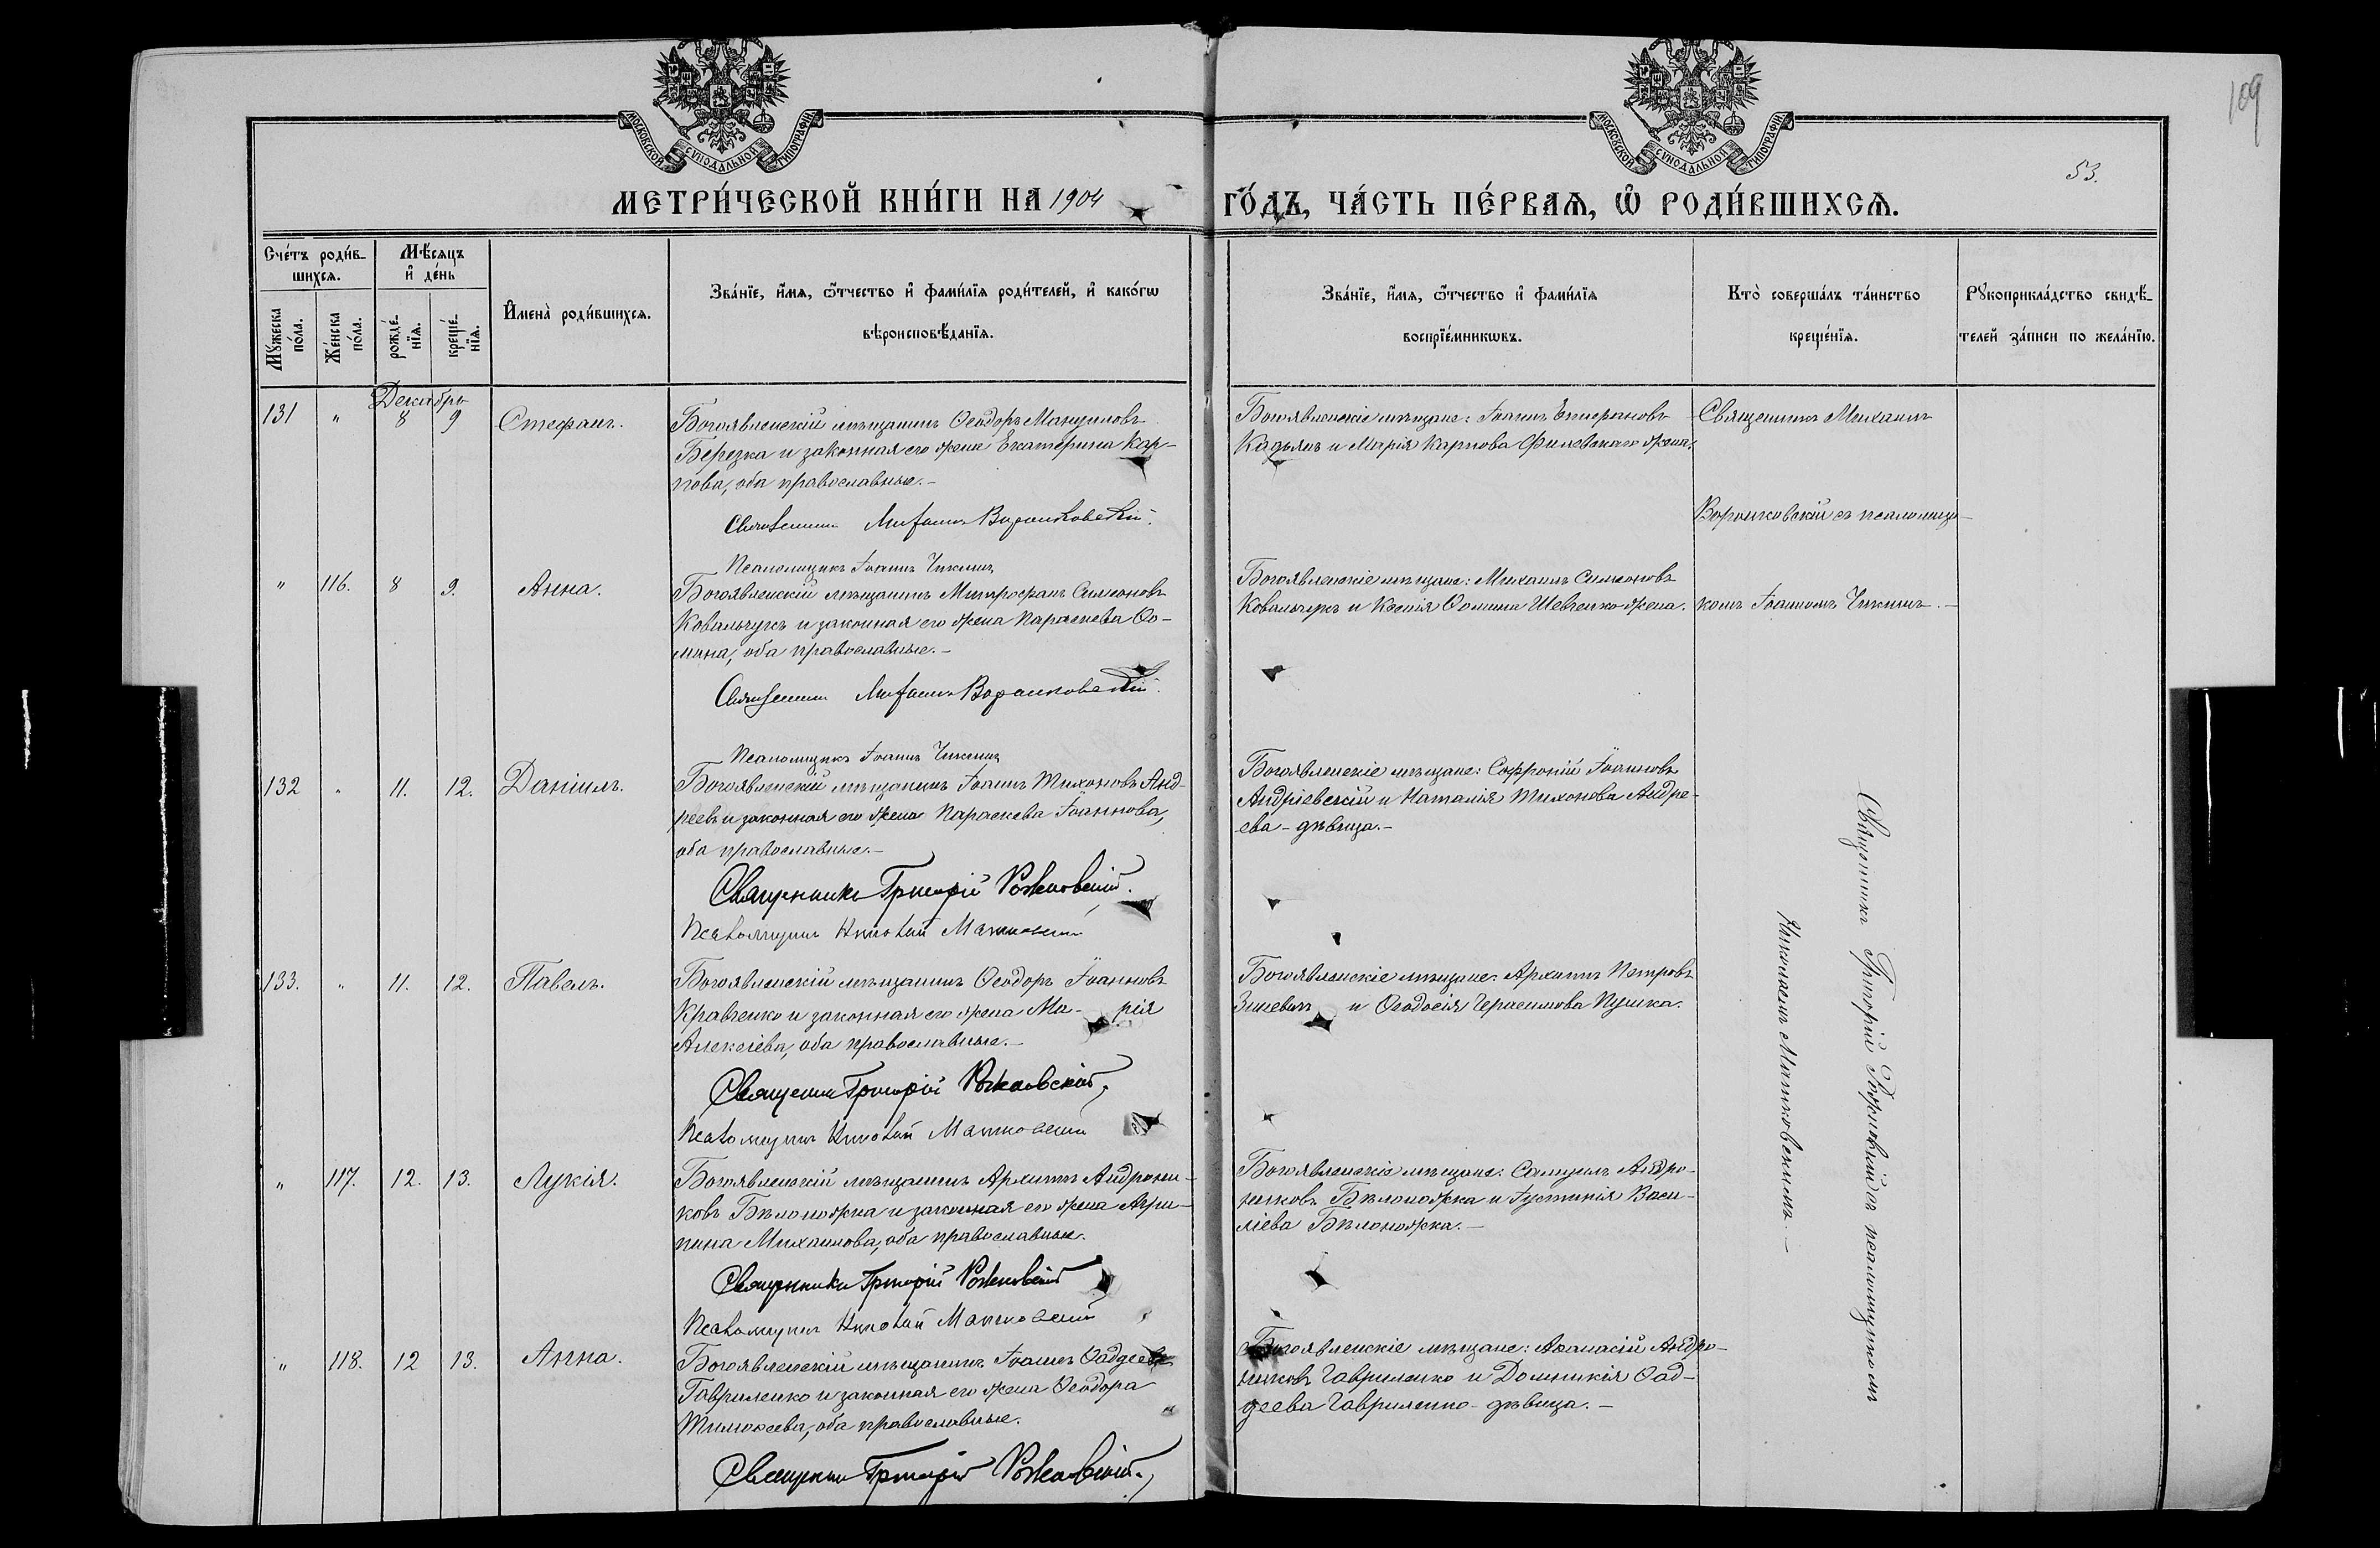 109
53.
МОСКОВСКОЙ СѴНОДАЛЬНОЙ ТИПОГРАФІИ
МОСКОВСКОЙ СѴНОДАЛЬНОЙ ТИПОГРАФІИ
МЕТРИ́ЧЕСКОЙ КНИ́ГИ НА 1904 ГО́ДЪ, ЧА́СТЬ ПЕ́РВАЯ, Ѡ҆ РОДИ́ВШИХСЯ.
Сче́тъ роди́в-
шихся.
Мѣ́сяцъ
и҆ де́нь
Му́жеска
по́ла.
Же́нска
по́ла.
рожде́-
нїя.
креще́-
нїя.
И҆мена̀ роди́вшихся.
Зва́нїе, и҆́мя, ѻ҆́тчество и҆ фами́лїя роди́телей, и҆ како́гѡ
вѣроисповѣ́данїя.
Зва́нїе, и҆́мя, ѻ҆́тчество и҆ фами́лїя
воспрїе́мникѡвъ.
Кто̀ соверша́лъ та́инство
креще́нїя.
Рꙋкоприкла́дство свидѣ́-
телей за́писи по жела́нїю.
Декабрь
131 " 8 9 Стефанъ.
Богоявленскій мѣщанинъ Ѳеодоръ
Березка и законная его жена Екатерина Кар-
пова, оба православные.-
Священникъ Михаилъ Воронковскій.
Псаломщикъ Іоаннъ Чикинъ
Богоявленскіе мѣщане: Іоаннъ
и Марія Карпова жена.
Священникъ Михаилъ
Воронковскій съ псаломщи-
комъ Іоанномъ Чикинъ.-
" 116. 8 9. Анна.
Богоявленскій мѣщанинъ Митрофанъ Симеоновъ
Ковальчукъ и законная его жена Параскева Ѳо-
мина, оба православные.-
Священникъ Михаилъ Воронковскій.
Псаломщикъ Іоаннъ Чикинъ
Богоявленскіе мѣщане: Михаилъ Симеоновъ
Ковальчукъ и Ксенія Ѳомина Шевченко жена.
132 " 11. 12. Даніилъ.
Богоявленскій мѣщанинъ Іоаннъ Тихоновъ Анд-
реевъ и законная его жена Параскева Іоаннова,
оба православные.-
Священникъ Григорій Рожновскій.
Псаломщикъ Николай Маньковскій
Богоявленскіе мѣщане: Софроній Іоанновъ
Андріевскій и Наталія Тихонова Андре-
ева - дѣвица.-
Священникъ Григорій Рожновскій съ псаломщикомъ
Николаемъ Маньковскимъ.-
133. " 11. 12. Павелъ.
Богоявленскій мѣщанинъ Ѳеодоръ Іоанновъ
Кравченко и законная его жена Ма- рія
Алексіева, оба православные.-
Священникъ Григорій Рожновскій.
Псаломщикъ Николай Маньковскій
Богоявленскіе мѣщане: Архипъ Петровъ
Зиневичъ и Ѳеодосія Герасимова Пушка.
" 117. 12. 13. Лукія.
Богоявленскій мѣщанинъ Архипъ Андрони-
ковъ Бѣлоножка и законная его жена Агри-
пина Михаилова, оба православные.
Священникъ Григорій Рожновскій
Псаломщикъ Николай Маньковскій
Богоявленскіе мѣщане: Самуилъ Андро-
никовъ Бѣлоножка и Іустинія Васи-
ліева Бѣлоножка.-
" 118. 12 13. Анна.
Богоявленскій мѣщанинъ Іоаннъ Ѳаддеевъ
Гавриленко и законная его жена Ѳеодора
Тимоѳеева, оба православные.
Священникъ Григорій Рожновскій.
Богоявленскіе мѣщане: Аѳанасій Андро-
никовъ Гавриленко и Домникія Ѳад-
деева Гавриленко - дѣвица.-